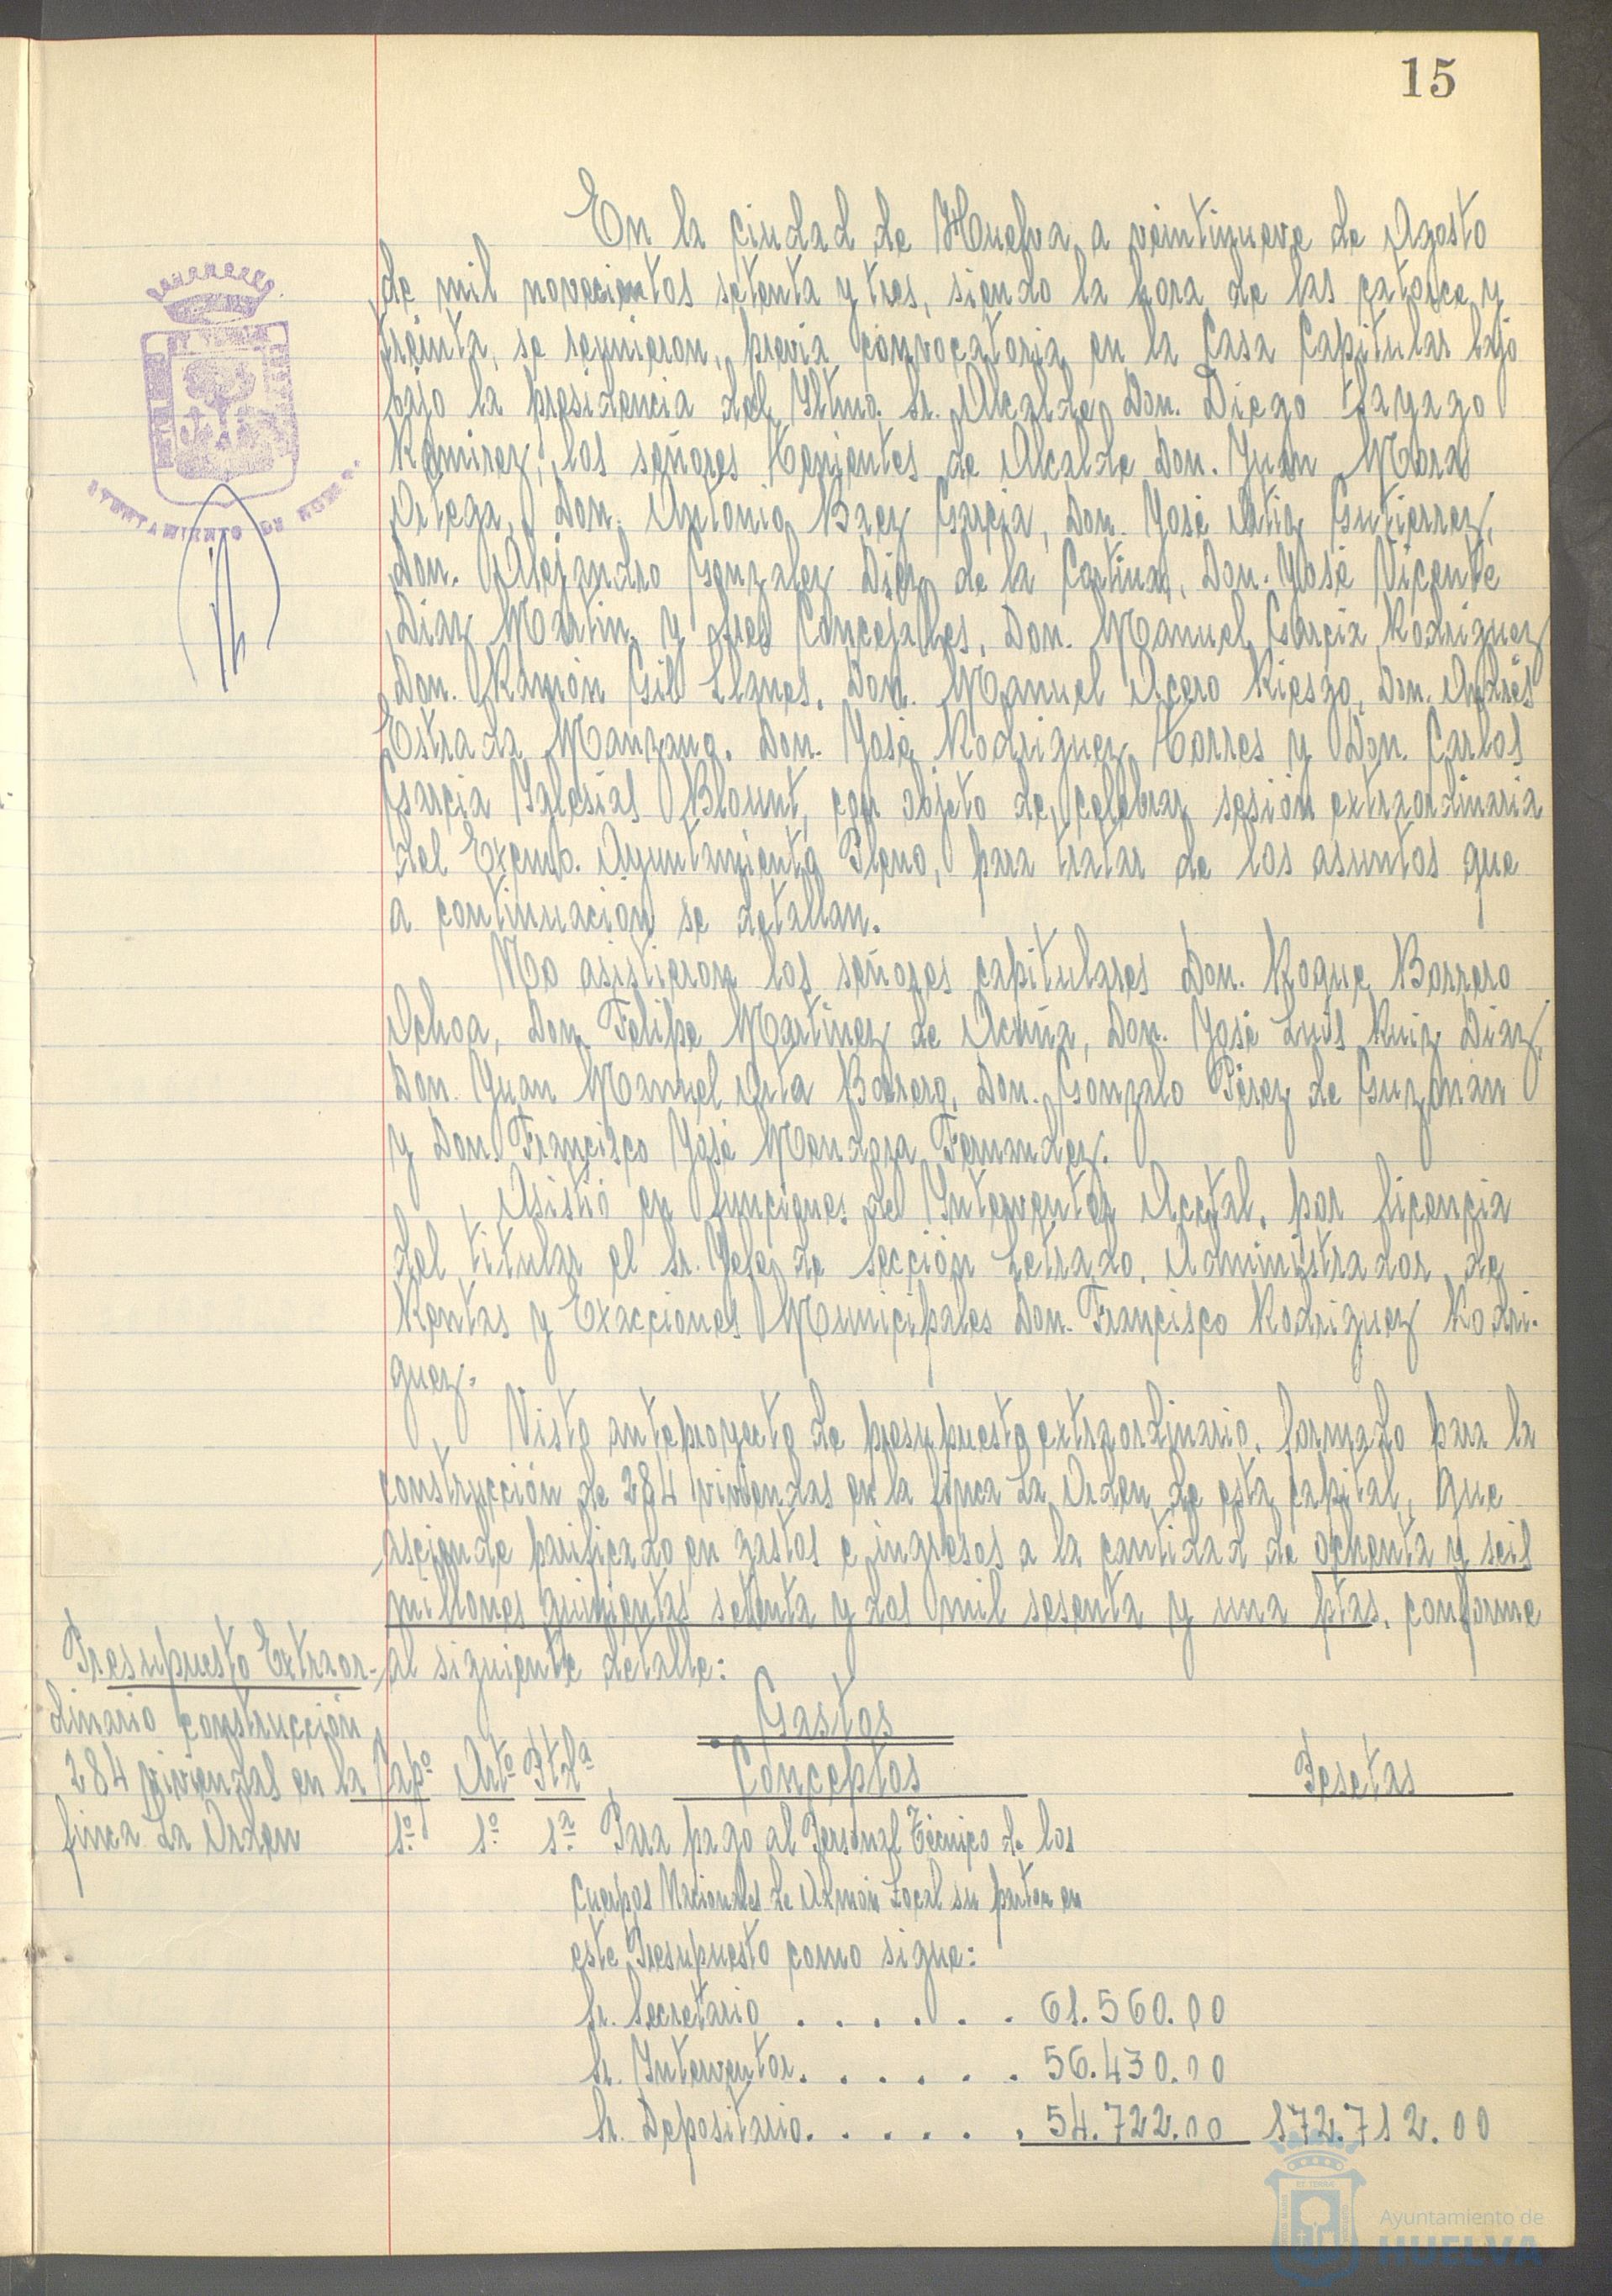 15
En la ciudad de Huelva, a veintinueve de Agosto
de mil novecientos setenta y tres, siendo la hora de las catorce y
treinta, se reunieron, previa convocatoria en la Casa Capitular bajo
bajo la presidencia del Iltmo. Sr. Alcalde, Don. Diego Sayago
Ramirez; los señores Tenientes de Alcalde Don. Juan Mora
Ortega, Don. Antonio Baez Garcia, Don. José Ortiz Gutierrez,
Don. Alejandro Gonzalez Diez de la Cortina, Don. José Vicente
Diaz Martin, y Sres Concejales, Don. Manuel Garcia Rodriguez
Don. Ramón Gil Llanes, Don. Manuel Acero Riesgo, Don. Andrés
Estrada Manzano, Don. José Rodriguez Torres y Don. Carlos
Garcia Iglesias Blount, con objeto de celebrar sesión extraordinaria
del Excmo. Ayuntamiento Pleno, para tratar de los asuntos que
a continuación se detallan.
No asistieron los señores capitulares Don. Roque Barrero
Ochoa, Don Felipe Martinez de Acuña, Don. José Luis Ruiz Diaz,
Don. Juan Manuel Orta Borrero, Don. Gonzalo Pérez de Guzmán
y Don. Francisco José Mendoza Fernandez.
Asistió en funciones de Interventor Acctal, por licencia
del titular el Sr. Jefe de Sección Letrado, Administrador de
Rentas y Exacciones Municipales Don. Francisco Rodriguez Rodri-
guez.
Visto anteproyecto de presupuesto extraordinario, formado para la
construcción de 284 viviendas en la finca La Orden de esta capital, que
asciende parificado en gastos e ingresos a la cantidad de ochenta y seis
millones quinientas setenta y dos mil sesenta y una ptas. conforme
al siguiente detalle:
Presupuesto Extraor-
dinario construcción
284 viviendas en la
finca La Orden
Gastos
Capº Artº Ptdª Conceptos Pesetas
1º. 1º. 1ª. Para pago al Personal Técnico de los
Cuerpos Nacionales de Admón Local su parton en
este Presupuesto como sigue:
Sr. Secretario . . . . . . 61.560.00
Sr. Interventor. . . . . . 56.430.00
Sr. Depositario. . . . . . 54.722.00 172.712.00
AYUNTAMIENTO DE
Ayuntamiento de
HUELVA